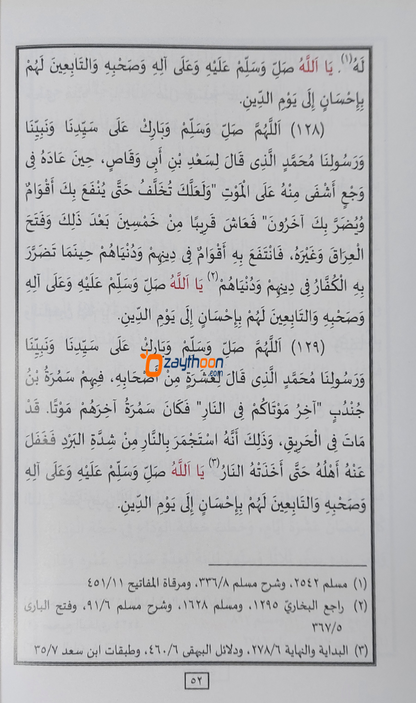 لَهُ(١). يَا اَللَّهُ صَلِّ وَسَلِّمْ عَلَيْهِ وَعَلَى آلِهِ وَصَحْبِهِ وَالتَّابِعِينَ لَهُمْ
بِإِحْسَانٍ إِلَى يَوْمِ الدِّينِ.
(١٢٨) اَللَّهُمَّ صَلِّ وَسَلِّمْ وَبَارِكْ عَلَى سَيِّدِنَا وَنَبِيِّنَا
وَرَسُولِنَا مُحَمَّدٍ الَّذِى قَالَ لِسَعْدِ بْنِ أَبِى وَقَّاصٍ، حِينَ عَادَهُ فِى
وَجْعٍ أَشْفَى مِنْهُ عَلَى الْمَوْتِ "وَلَعَلَّكَ تُخَلَّفُ حَتَّى يُنْفَعَ بِكَ أَقْوَامٌ
وَيُضَرَّ بِكَ آخَرُونَ" فَعَاشَ قَرِيبًا مِنْ خَمْسِينَ بَعْدَ ذَلِكَ وَفَتَحَ
الْعِرَاقَ وَغَيْرَهُ، فَانْتَفَعَ بِهِ أَقْوَامٌ فِى دِينِهِمْ وَدُنْيَاهُمْ حِينَمَا تَضَرَّرَ
بِهِ الْكُفَّارُ فِى دِينِهِمْ وَدُنْيَاهُمْ(٢) يَا اَللَّهُ صَلِّ وَسَلِّمْ عَلَيْهِ وَعَلَى آلِهِ
وَصَحْبِهِ وَالتَّابِعِينَ لَهُمْ بِإِحْسَانٍ إِلَى يَوْمِ الدِّينِ.
(١٢٩) اَللَّهُمَّ صَلِّ وَسَلِّمْ وَبَارِكْ عَلَى سَيِّدِنَا وَنَبِيِّنَا
zaythoon.com
وَرَسُولِنَا مُحَمَّدٍ الَّذِى قَالَ لِعَشْرَةٍ مِنْ أَصْحَابِهِ، فِيهِمْ سَمُرَةُ بْنُ
جُنْدُبٍ "آخِرُ مَوْتَاكُمْ فِى النَّارِ" فَكَانَ سَمُرَةُ آخِرَهُمْ مَوْتًا. قَدْ
مَاتَ فِى الْحَرِيقِ، وَذَلِكَ أَنَّهُ اسْتَجْمَرَ بِالنَّارِ مِنْ شِدَّةِ الْبَرْدِ فَغَفَلَ
عَنْهُ أَهْلُهُ حَتَّى أَخَذَتْهُ النَّارُ(٣) يَا اَللَّهُ صَلِّ وَسَلِّمْ عَلَيْهِ وَعَلَى آلِهِ
وَصَحْبِهِ وَالتَّابِعِينَ لَهُمْ بِإِحْسَانٍ إِلَى يَوْمِ الدِّينِ.
(١) مسلم ٢٥٤٢، وشرح مسلم ٣٣٦/٨، ومرقاة المفاتيح ٤٥١/١١
(٢) راجع البخاريّ ١٢٩٥، ومسلم ١٦٢٨، وشرح مسلم ٩١/٦، وفتح البارى
٣٦٧/٥
(٣) البداية والنهاية ٢٧٨/٦، ودلائل البيهقى ٤٦٠/٦، وطبقات ابن سعد ٣٥/٧
٥٢